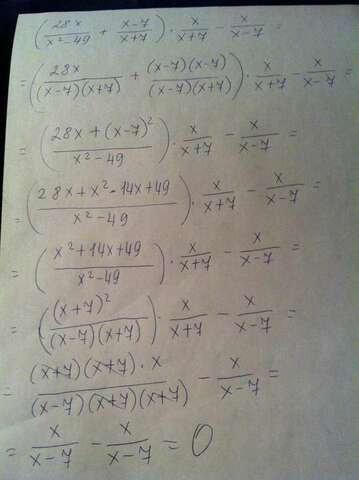 (28x/(x²-49) + (x-7)/(x+7)) · x/(x+7) - x/(x-7) =
= (28x/((x-7)(x+7)) + (x-7)(x-7)/((x-7)(x+7))) · x/(x+7) - x/(x-7) =
= ((28x+(x-7)²)/(x²-49)) · x/(x+7) - x/(x-7) =
= ((28x+x²-14x+49)/(x²-49)) · x/(x+7) - x/(x-7) =
= ((x²+14x+49)/(x²-49)) · x/(x+7) - x/(x-7) =
= ((x+7)²/((x-7)(x+7))) · x/(x+7) - x/(x-7) =
= (x+7)(x+7)·x/((x-7)(x+7)(x+7)) - x/(x-7) =
= x/(x-7) - x/(x-7) = 0